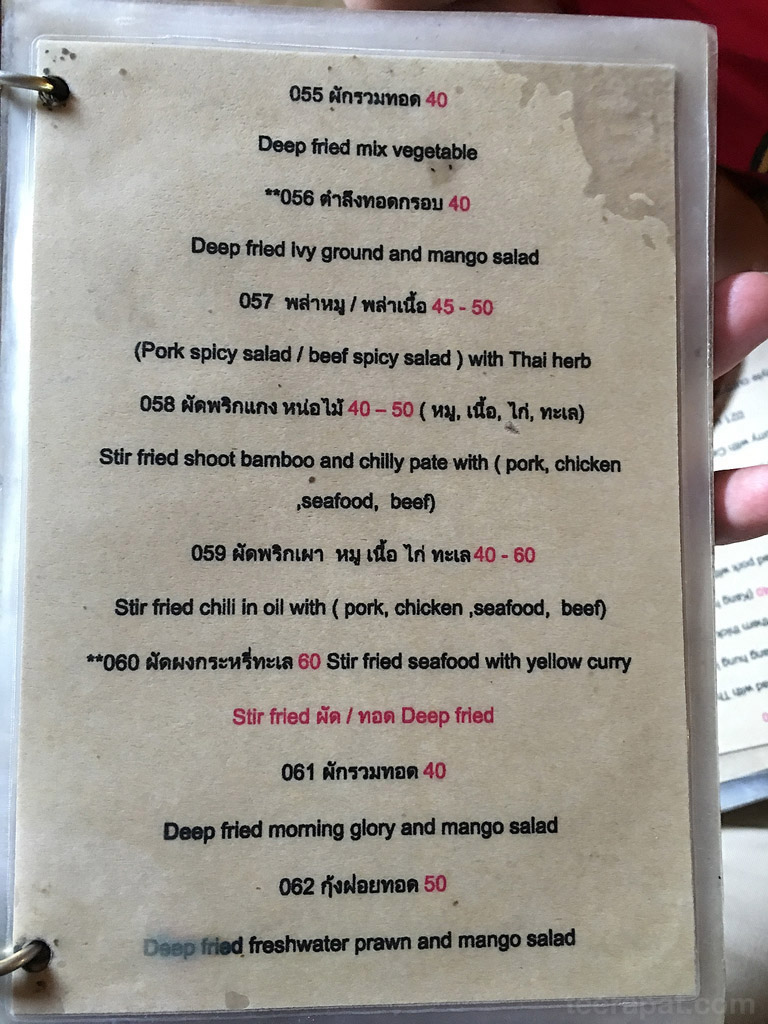 055 ผักรวมทอด 40
Deep fried mix vegetable
**056 ตำลึงทอดกรอบ 40
Deep fried ivy ground and mango salad
057 พล่าหมู / พล่าเนื้อ 45 - 50
(Pork spicy salad / beef spicy salad ) with Thai herb
058 ผัดพริกแกง หน่อไม้ 40 – 50 ( หมู, เนื้อ, ไก่, ทะเล)
Stir fried shoot bamboo and chilly pate with ( pork, chicken
,seafood, beef)
059 ผัดพริกเผา หมู เนื้อ ไก่ ทะเล 40 - 60
Stir fried chili in oil with ( pork, chicken ,seafood, beef)
**060 ผัดผงกระหรี่ทะเล 60 Stir fried seafood with yellow curry
Stir fried ผัด / ทอด Deep fried
061 ผักรวมทอด 40
Deep fried morning glory and mango salad
062 กุ้งฝอยทอด 50
Deep fried freshwater prawn and mango salad
teerapat.com